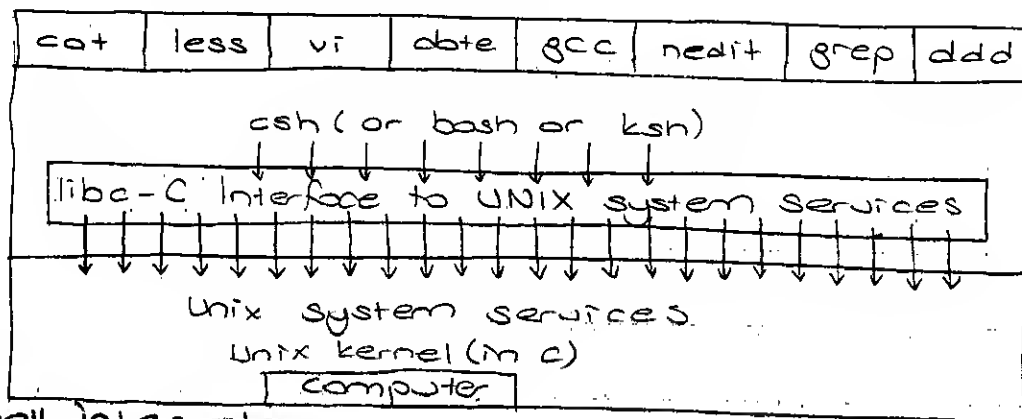 cat less vi date gcc nedit grep ddd
csh (or bash or ksh)
libc-C Interface to UNIX system services
Unix system services
Unix kernel (in c)
computer